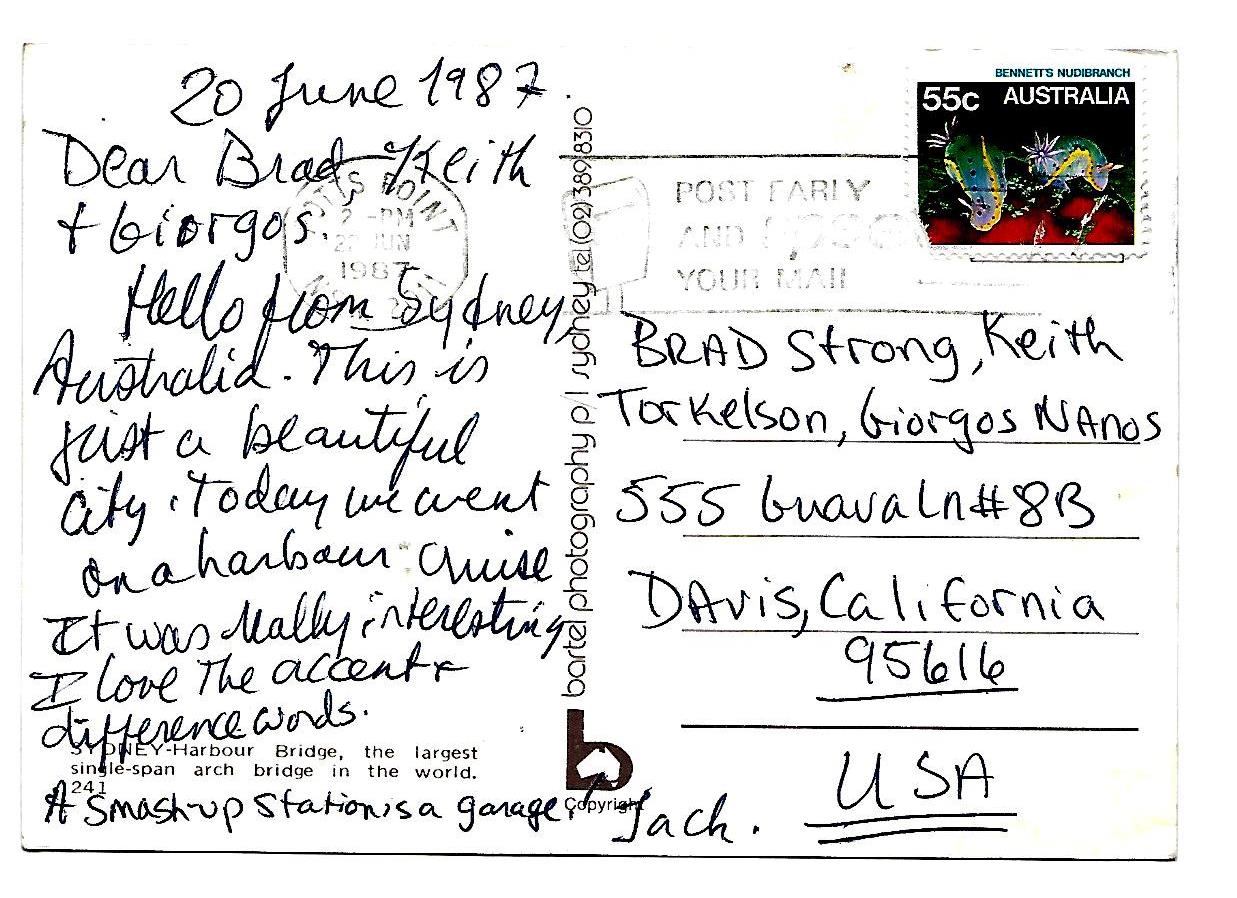 20 June 1987.
Dear Brad, Keith
+ Giorgos.
Hello from Sydney,
Australia. This is
just a beautiful
city. Today we went
on a harbour cruise
It was really interesting
I love the accent +
difference words.
SYDNEY-Harbour Bridge, the largest
single-span arch bridge in the world.
241
A smash-up station is a garage.
Jack.
bartel photography p/l sydney tel (02) 389 8310
b
Copyright
POTTS POINT
2 -PM
JUN
1987
POST EARLY
AND
YOUR MAIL
BENNETT'S NUDIBRANCH
55c AUSTRALIA
BRAD Strong, Keith
Torkelson, Giorgos NAnos
555 Guava Ln #8B
DAvis, California
95616
USA